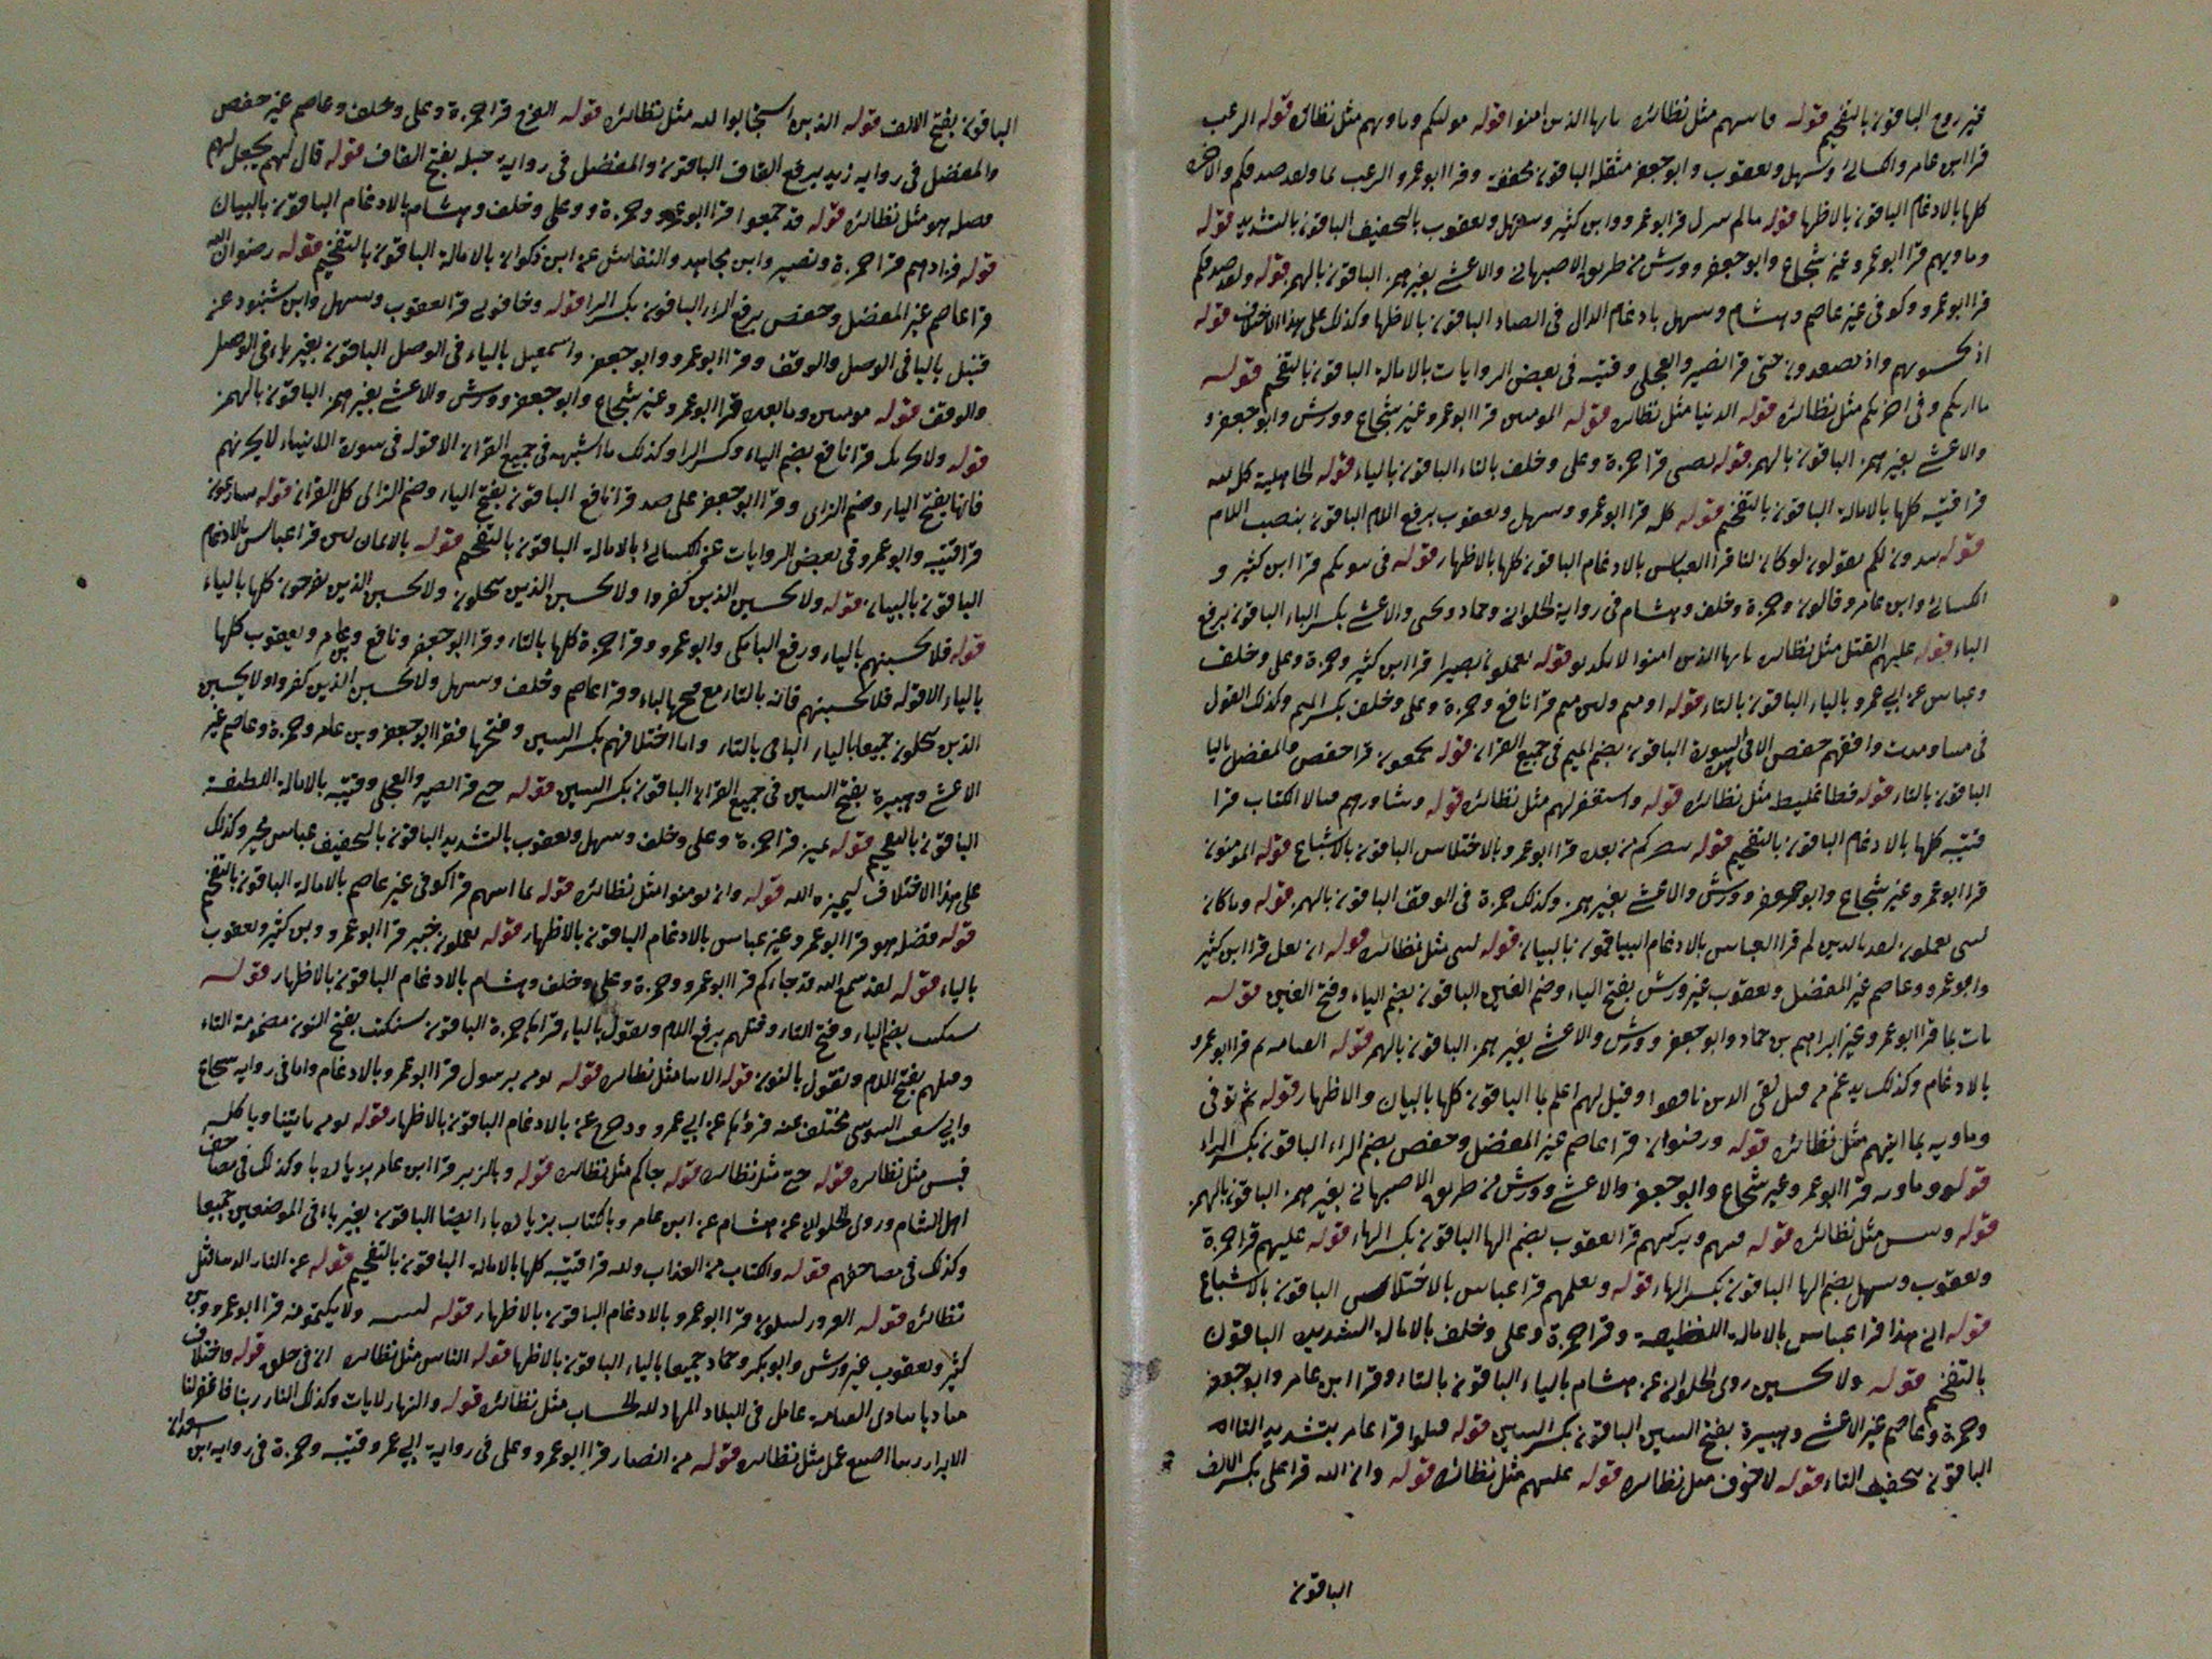 غير روح الباقون بالتفخيم قوله فاسهم مثل نظائره يايها الذين امنوا قوله موليكم وماويهم مثل نظائره قوله الرعب
قرا ابن عامر والكسائي وسهل ويعقوب وابو جعفر مثقلة الباقون مخففة وقرا ابو عمرو الرعب بما ولقد صدقكم والاخرة
كلها بالادغام الباقون بالاظهار قوله مالم ينزل قرا ابو عمرو وابن كثير وسهل ويعقوب بالتخفيف الباقون بالتشديد قوله
وماويهم قرا ابو عمرو غير شجاع وابو جعفر وورش من طريق الاصبهاني والاعشى بغير همز الباقون بالهمز قوله ولقد صدقكم
قرا ابو عمرو وكوفى غير عاصم وهشام وسهل بادغام الدال فى الصاد الباقون بالاظهار وكذلك على هذا الاختلاف قوله
اذ تحسونهم واذ تصعدون حتى قرا نصير والعجلى وقتيبه فى بعض الروايات بالامالة الباقون بالتفخيم قوله
ما اريكم وفى اخريكم مثل نظائره قوله الدنيا مثل نظائره قوله المومنين قرا ابو عمرو غير شجاع وورش وابو جعفر و
والاعشى بغير همز الباقون بالهمز قوله يغشى قرا حمزة وعلى وخلف بالتاء الباقون بالياء قوله الجاهلية كله لله
قرا قتيبه كلها بالامالة الباقون بالتفخيم قوله كله قرا ابو عمرو وسهل ويعقوب برفع اللام الباقون بنصب اللام
قوله يبدون لك يقولون لو كان لنا قرا العباس بالادغام الباقون كلها بالاظهار قوله فى بيوتكم قرا ابن كثير و
الكسائي وابن عامر وقالون وحمزة وخلف وهشام فى رواية الحلوانى وحماد ويحيى والاعشى بكسر الباء الباقون برفع
الباء قوله عليهم القتل مثل نظائره يايها الذين امنوا لا تكونوا قوله يعملون بصير قرا ابن كثير وحمزة وعلى وخلف
وعباس عن ابي عمرو بالياء الباقون بالتاء قوله او متم ولئن متم قرا نافع وحمزة وعلى وخلف بكسر الميم وكذلك القول
فى متنا ومت وافقهم حفص الا فى هذه السورة الباقون بضم الميم فى جميع القران قوله يجمعون قرا حفص والمفضل باليا
الباقون بالتاء قوله فظا غليظ مثل نظائره قوله واستغفر لهم مثل نظائره قوله وشاورهم الكتاب قرا
قتيبه كلها بالادغام الباقون بالتفخيم قوله ينصركم من بعده قرا ابو عمرو بالاختلاس الباقون بالاشباع قوله المومنون
قرا ابو عمرو غير شجاع وابو جعفر وورش والاعشى بغير همز وكذلك حمزة فى الوقف الباقون بالهمز قوله وماكان
يعملون لقد قرا العباس بالادغام الباقون بالبيان قوله لنبى مثل نظائره قوله ان يغل قرا ابن كثير
وابو عمرو وعاصم غير المفضل ويعقوب غير ورش بفتح الياء وضم الغين الباقون بضم الياء وفتح الغين قوله
يات بما قرا ابو عمرو غير ابراهيم بن حماد وابو جعفر وورش والاعشى بغير همز الباقون بالهمز قوله القيامة ثم قرا ابو عمرو
بالادغام وكذلك يدغم من قبل لفى الذين نافقوا وقيل لهم اعلم بما الباقون كلها بالبيان والاظهار قوله ثم توفى
وماويه بما اتيهم مثل نظائره قوله ورضوان قرا عاصم غير المفضل وحفص بضم الراء الباقون بكسر الراء
قوله وماويه قرا ابو عمرو غير شجاع وابو جعفر والاعشى وورش من طريق الاصبهاني بغير همز الباقون بالهمز
قوله وبئس مثل نظائره قوله فيهم ويزكيهم قرا يعقوب بضم الها الباقون بكسر الهاء قوله عليهم قرا حمزة
ويعقوب وسهل بضم الها الباقون بكسر الهاء قوله ويعلمهم قرا عباس بالاختلاس الباقون بالاشباع
قوله انى هذا قرا عباس بالامالة اللطيفة وقرا حمزة وعلى وخلف بالامالة الشديدة الباقون
بالتفخيم قوله ولا تحسبن روى الحلوانى عن هشام بالياء الباقون بالتاء وقرا ابن عامر وابو جعفر
وحمزة وعاصم غير الاعشى وهبيرة بفتح السين الباقون بكسر السين قوله قتلوا قرا عامر بتشديد التاء
الباقون بتخفيف التاء قوله لا خوف مثل نظائره قوله عليهم مثل نظائره قوله وان الله قرا على بكسر الالف
الباقون
الباقون بفتح الالف قوله الذين استجابوا لله مثل نظائره قوله القرح قرا حمزة وعلى وخلف وعاصم غير حفص
والمفضل فى رواية زيد برفع القاف الباقون والمفضل فى رواية جبلة بفتح القاف قوله قال لهم يجعل لهم
فضله هو مثل نظائره قوله قد جمعوا قرا ابو عمرو وحمزة وعلى وخلف وهشام بالادغام الباقون بالبيان
قوله فزادهم قرا حمزة ونصير وابن مجاهد والنقاش عن ابن ذكوان بالامالة الباقون بالتفخيم قوله رضوان الله
قرا عاصم غير المفضل وحفص برفع الراء الباقون بكسر الرا قوله وخافونى قرا يعقوب وسهل وابن شنبوذ عن
قنبل باليا فى الوصل والوقف وقرا ابو عمرو وابو جعفر واسمعيل بالياء فى الوصل الباقون بغير ياء فى الوصل
والوقف قوله مومنين وما بعده قرا ابو عمرو غير شجاع وابو جعفر وورش والاعشى بغير همز الباقون بالهمز
قوله ولا يحزنك قرا نافع بضم الياء وكسر الزا وكذلك ما اشبهه فى جميع القران الا قوله فى سورة الانبياء لا يحزنهم
فانها بفتح الياء وضم الزاى وقرا ابو جعفر على ضد قرا نافع الباقون بفتح الياء وضم الزاى كل القران قوله يسارعون
قرا قتيبه وابو عمرو فى بعض الروايات عن الكسائي بالامالة الباقون بالتفخيم قوله بالايمان لن قرا عباس بالادغام
الباقون بالبيان قوله ولا تحسبن الذين كفروا ولا تحسبن الذين يبخلون ولا تحسبن الذين يفرحون كلها بالياء
قوله فلا تحسبنهم بالياء ورفع البا مكى وابو عمرو وقرا حمزة كلها بالتاء وقرا ابو جعفر ونافع وابن عامر ويعقوب كلها
بالياء الا قوله فلا تحسبنهم فانه بالتاء مع فتح الباء وقرا عاصم وخلف وسهل ولا تحسبن الذين كفروا ولا تحسبن
الذين يبخلون جميعا بالياء الباقى بالتاء واما اختلافهم بكسر السين وفتحها فقرا ابو جعفر وابن عامر وحمزة وعاصم غير
الاعشى وهبيرة بفتح السين فى جميع القران الباقون بكسر السين قوله حتى قرا نصير والعجلى وقتيبه بالامالة اللطيفة
الباقون بالتفخيم قوله يميز قرا حمزة وعلى وخلف وسهل ويعقوب بالتشديد الباقون بالتخفيف عباس مخير وكذلك
على هذا الاختلاف ليميز الله قوله وان تومنوا مثل نظائره قوله بما اتيهم قرا كوفى غير عاصم بالامالة الباقون بالتفخيم
قوله فضله هو قرا ابو عمرو غير عباس بالادغام الباقون بالاظهار قوله يعملون خبير قرا ابو عمرو وابن كثير ويعقوب
بالياء قوله لقد سمع الله قد جاءكم قرا ابو عمرو وحمزة وعلى وخلف وهشام بالادغام الباقون بالاظهار قوله
سيكتب بضم الياء وفتح التاء وقتلهم برفع اللام ويقول بالياء قراءة حمزة الباقون سنكتب بفتح النون مضمومة التاء
وقتلهم بفتح اللام ونقول بالنون قوله الانبيا مثل نظائره قوله نومن لرسول قرا ابو عمرو بالادغام واما فى رواية شجاع
وابي شعيب السوسى مختلف عنه فروى عن ابي عمرو بالادغام الباقون بالاظهار قوله نومن ياتينا وتاكله
فبئس مثل نظائره قوله حتى مثل نظائره قوله جاكم مثل نظائره قوله وبالزبر قرا ابن عامر بزيادة با وكذلك فى مصاحف
اهل الشام وروى الحلوانى عن هشام عن ابن عامر وبالكتاب بزيادة باء ايضا الباقون بغير باء فى الموضعين جميعا
وكذلك فى مصاحفهم قوله والكتاب من العذاب ولله قرا قتيبه كلها بالامالة الباقون بالتفخيم قوله عن النار الدنيا مثل
نظائره قوله الغرور لتبلون قرا ابو عمرو بالادغام الباقون بالاظهار قوله ليبيننه ولا يكتمونه قرا ابو عمرو وابن
كثير ويعقوب غير ورش وابو بكر وحماد جميعا بالياء الباقون بالاظهار قوله الناس مثل نظائره ان فى خلق قوله واختلاف
مناديا ينادى القيامة عامل فى البلاد المهاد لله الحساب مثل نظائره قوله والنهار لايات وكذلك النار ربنا فاغفر لنا
الابرار ربنا اضيع عمل مثل نظائره قوله من انصار قرا ابو عمرو وعلى فى رواية ابي عمرو قتيبه وحمزة فى رواية ابن سعدان